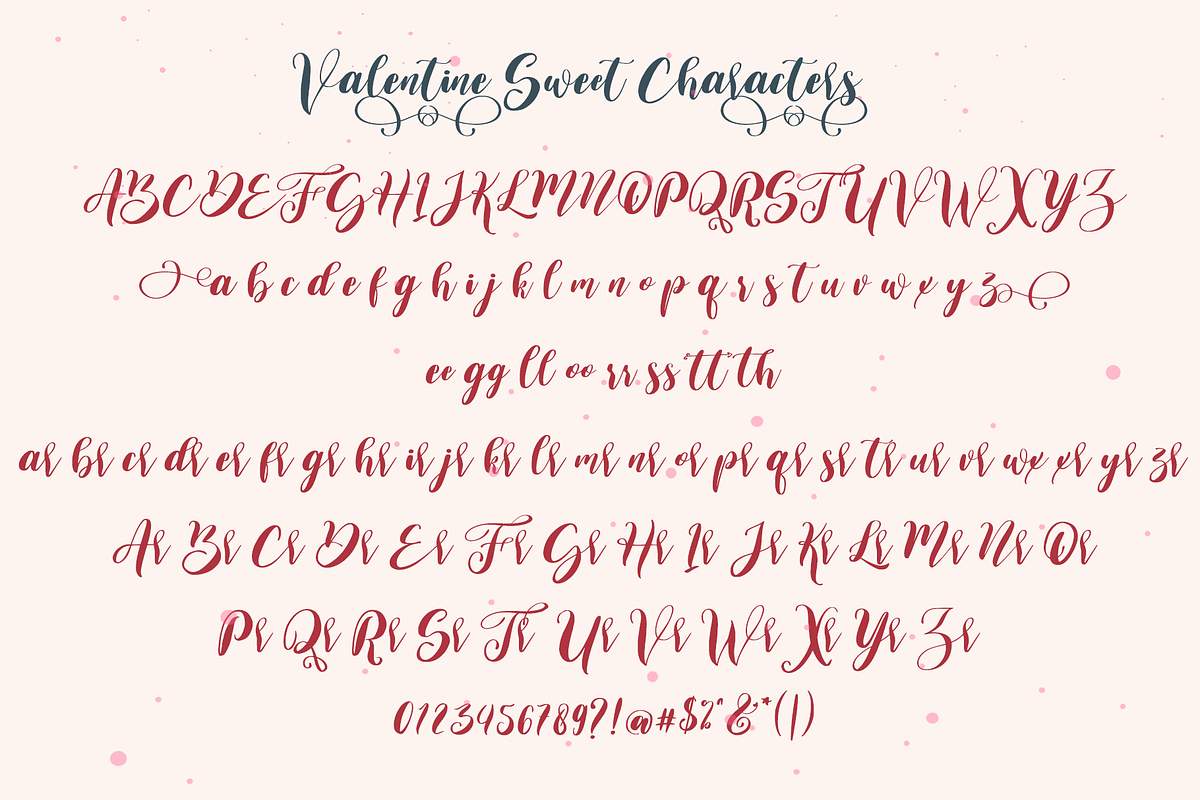 Valentine Sweet Characters
ABCDEFGHIJKLMNOPQRSTUVWXYZ
a b c d e f g h i j k l m n o p q r s t u v w x y z
ee gg ll oo rr ss tt th
ar br cr dr er fr gr hr ir jr kr lr mr nr or pr qr sr tr ur vr wr xr yr zr
Ar Br Cr Dr Er Fr Gr Hr Ir Jr Kr Lr Mr Nr Or
Pr Qr Rr Sr Tr Ur Vr Wr Xr Yr Zr
0123456789?!@#$%^&*(|)